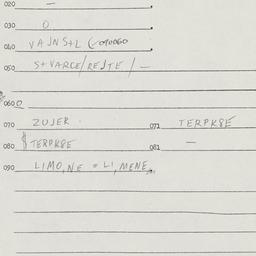 020 —
030 0
040 VAJNS+L
050 S+VARCE/REJTE/—
060
070 ZUJER 071 TERPK8E
080 TERPK8E 081 —
090 LIMO,NE = LI,MENE